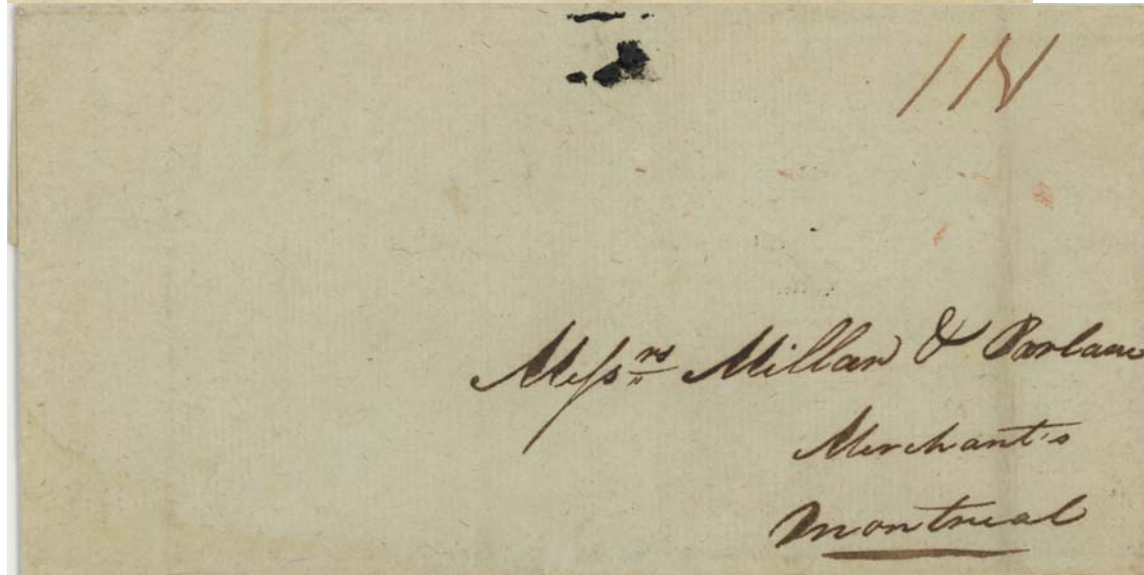 Meſsrs Millar & Parlane
Merchant's
Montreal